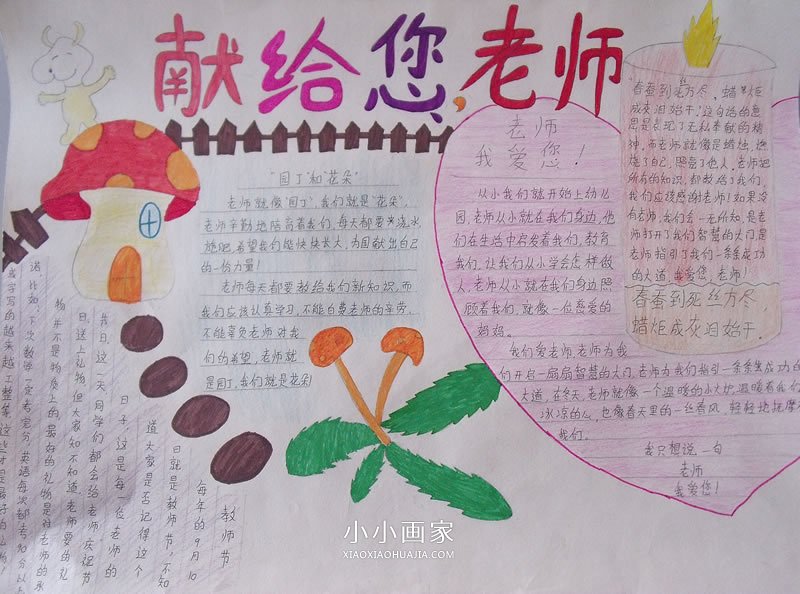 献给您,老师
"园丁"和"花朵"
老师就像"园丁",我们就是"花朵",
老师辛勤地陪育着我们,每天都要为浇水
施肥,希望我们能快快长大,为国献出自己
的一份力量!
老师每天都要教给我们新知识,而
我们应该认真学习,不能白费老师的辛劳,
不能辜负老师对我
们的希望,老师就
是园丁,我们就是花朵!
老师
我爱您!
从小我们就开始上幼儿
园,老师从小就在我们身边,他
们在生活中启发着我们,教育
我们,让我们从小学会怎样做
人,老师从小就在我们身边照
顾着我们,就像一位慈爱的
妈妈。
我们爱老师,老师为我
们开启一扇扇智慧的大门,老师为我们指引一条条成功的
大道,在冬天,老师就像一个温暖的小火炉,温暖着我们
冰凉的心,也像春天里的一丝春风,轻轻地抚摩
我们。
我只想说一句
老师
我爱您!
"春蚕到死丝方尽,蜡炬
成灰泪始干",这句话的意
思是表现了无私奉献的精
神,而老师就像是蜡烛,燃烧
了自己,照亮了他人,老师把
所有的知识,都教给了我们,
我们应该感谢老师!如果没
有老师,我们会一无所知,是老
师打开了我们智慧的大门,是
老师指引了我们一条条成功
的大道,我爱您,老师!
春蚕到死丝方尽,
蜡炬成灰泪始干。
教师节
每年的9月10
日就是教师节,不知
道大家是否记得这个
日子,这是每一位老师的
节日,这一天同学们都会给老师庆祝节
日,送上礼物,但大家知不知道,老师要的礼
物并不是物质上的,最好的礼物是对老师的承
诺,比如:下次数学一定考满分,英语每次都考
字写的越来越工整等,这些才是最好的礼物!
小小画家
XIAOXIAOHUAJIA.COM